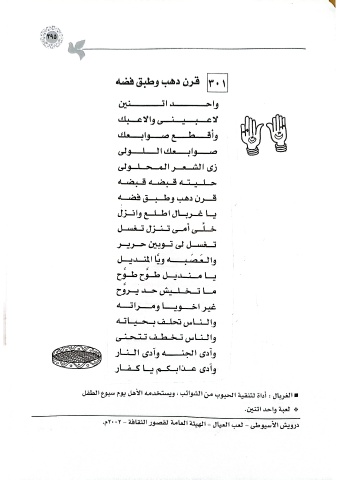 ٢٩٥
٣٠١ قرن دهب وطبق فضه
واحــد اتـنـين
لاعـبـيـنـى والاعـبـك
وأقـطـع صـوابـعـك
صـوابـعـك الـلـولـى
زى الشعـر المـحـلـولـى
حليـتـه قبـضـه قبـضـه
قـرن دهـب وطـبـق فضـه
يـا غـربـال اطـلـع وانـزل
خلّـى أمـى تـنـزل تـغـسـل
تـغـسـل لى تـوبـيـن حـريـر
والعَـصَـبـه ويّـا المنـديـل
يـا مـنـديـل طـوّح طـوّح
مـا تـخـلـيـش حـد يـروّح
غـيـر اخـويـا ومـراتـه
والناس تحلف بـحيـاتـه
والنـاس تخطـف تتحنـى
وآدى الجنـه وآدى النـار
وآدى عـذابـكـم يـا كـفـار
■ الغربال : أداة لتنقية الحبوب من الشوائب ، ويستخدمه الأهل يوم سبوع الطفل
❖ لعبة واحد اتنين.
درويش الأسيوطى - لعب العيال - الهيئة العامة لقصور الثقافة - ٢٠٠٢م.